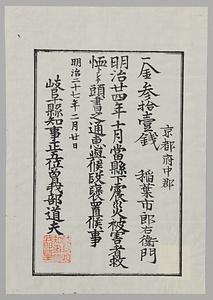 京都府中郡
一金参拾壹銭 稲葉市郎右衛門
明治廿四年十月當縣下震災被害者救
恤トシテ頭書之通恵與候段奇特候事
明治二十七年二月廿日
岐阜縣知事正五位曽我部道夫